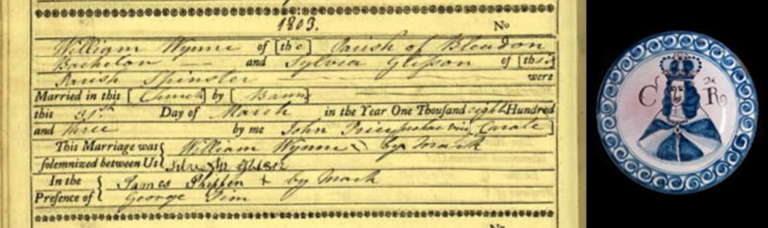 1803.
No
William Wynne of [the] Parish of Bleadon
Bachelor and Sylvia Glisson of [this
Parish Spinster were
Married in this [Church] by [Banns
this 31st Day of March in the Year One Thousand eight Hundred
and three by me John Curate]
This Marriage was { William Wynne x by mark
solemnized between Us {
In the { James Phippen + by Mark
Presence of { George Tim
C 2d R